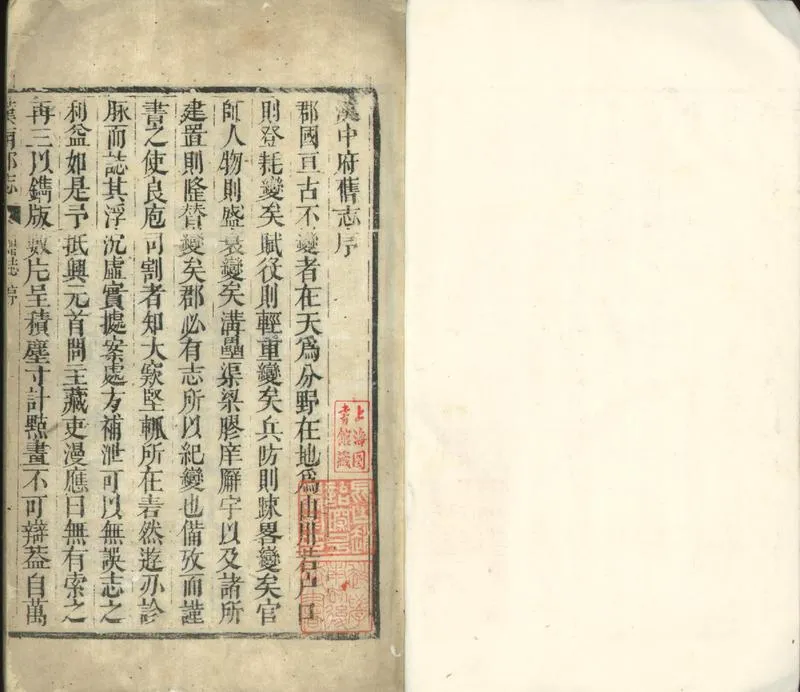 漢中府舊志序
郡國亘古不變者在天爲分野在地爲山川若户口
則登耗變矣賦役則輕重變矣兵防則踈畧變矣官
師人物則盛衰變矣溝壘渠梁膠庠廨宇以及諸所
建置則隆替變矣郡必有志所以紀變也備攷而謹
書之使良庖可割者知大窾堅輒所在砉然遊刃診
脉而誌其浮沉虛實據案處方補泄可以無誤志之
利益如是予抵興元首問主藏吏漫應曰無有索之
再三以鐫版數片呈積塵寸計㸃畫不可辯葢自萬
漢南郡志
舊誌序
上海圖
書館藏